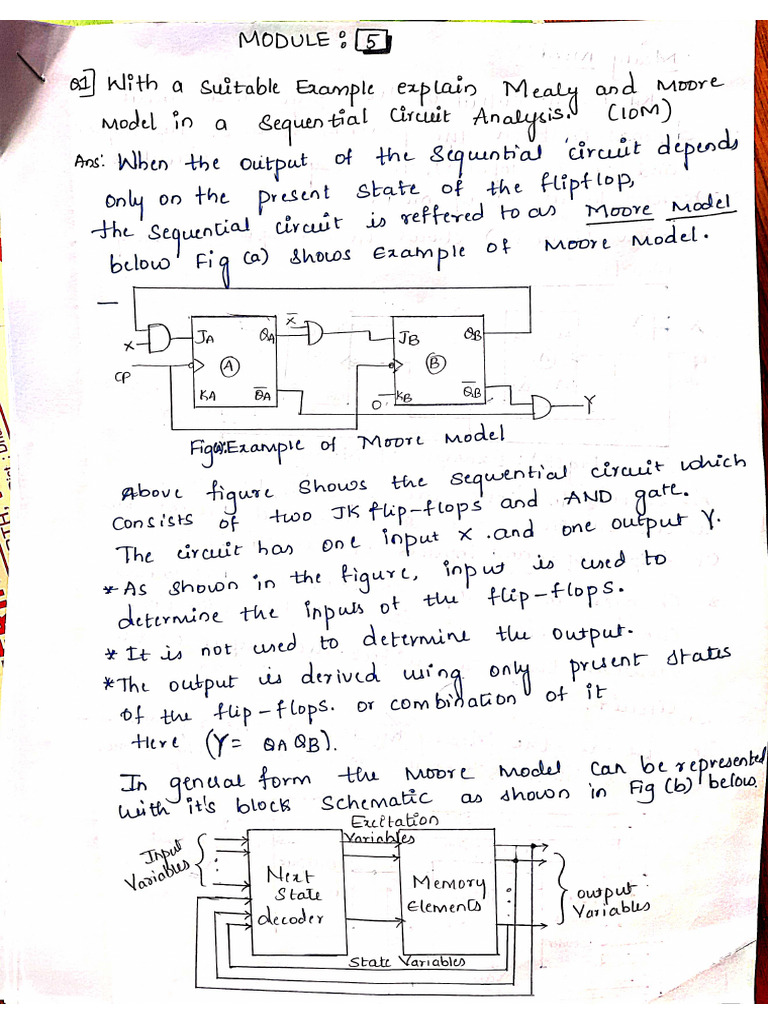 MODULE : 5
Q1] With a suitable Example explain Mealy and Moore
Model in a Sequential Circuit Analysis. (10M)
Ans: When the output of the sequential circuit depends
only on the present state of the flipflop,
the sequential circuit is reffered to as Moore Model
below Fig (a) shows Example of Moore Model.
X
CP
JA QA
A
KA Q̅A
X̅
JB QB
B
0 KB Q̅B
Y
Fig(a): Example of Moore Model
Above figure shows the sequential circuit which
consists of two JK flip-flops and AND gate.
The circuit has one input X and one output Y.
* As shown in the figure, input is used to
determine the inputs of the flip-flops.
* It is not used to determine the output.
* The output is derived using only present states
of the flip-flops. or combination of it
Here (Y = QA QB).
In general form the Moore Model can be represented
with it's block schematic as shown in Fig (b) below.
Excitation
Variables
Input
Variables
Next
State
decoder
Memory
Elements
output
Variables
State Variables